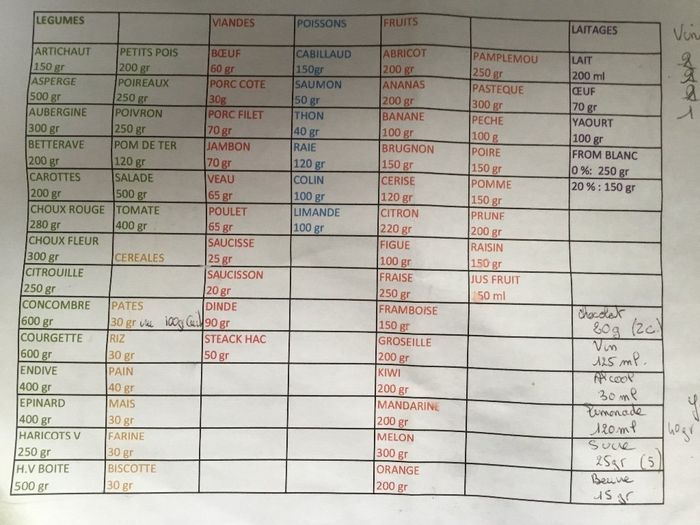 LEGUMES VIANDES POISSONS FRUITS LAITAGES Vin
ARTICHAUT PETITS POIS BŒUF CABILLAUD ABRICOT PAMPLEMOU LAIT
150 gr 200 gr 60 gr 150gr 200 gr 250 gr 200 ml
ASPERGE POIREAUX PORC COTE SAUMON ANANAS PASTEQUE ŒUF
500 gr 250 gr 30g 50 gr 200 gr 300 gr 70 gr
AUBERGINE POIVRON PORC FILET THON BANANE PECHE YAOURT 1
300 gr 250 gr 70 gr 40 gr 100 gr 100 g 100 gr
BETTERAVE POM DE TER JAMBON RAIE BRUGNON POIRE FROM BLANC
200 gr 120 gr 70 gr 120 gr 150 gr 150 gr 0 %: 250 gr
CAROTTES SALADE VEAU COLIN CERISE POMME 20 % : 150 gr
200 gr 500 gr 65 gr 100 gr 120 gr 150 gr
CHOUX ROUGE TOMATE POULET LIMANDE CITRON PRUNE
280 gr 400 gr 65 gr 100 gr 220 gr 200 gr
CHOUX FLEUR SAUCISSE FIGUE RAISIN
300 gr CEREALES 25 gr 100 gr 150 gr
CITROUILLE SAUCISSON FRAISE JUS FRUIT
250 gr 20 gr 250 gr 50 ml
CONCOMBRE PATES DINDE FRAMBOISE chocolat
600 gr 30 gr 100g 90 gr 150 gr 20g (2c)
COURGETTE RIZ STEACK HAC GROSEILLE Vin
600 gr 30 gr 50 gr 200 gr 125 ml.
ENDIVE PAIN KIWI Alcool
400 gr 40 gr 200 gr 30 ml
EPINARD MAIS MANDARINE Limonade
400 gr 30 gr 200 gr 120ml 40gr
HARICOTS V FARINE MELON Sucre
250 gr 30 gr 300 gr 25gr (5)
H.V BOITE BISCOTTE ORANGE Beurre
500 gr 30 gr 200 gr 15 gr